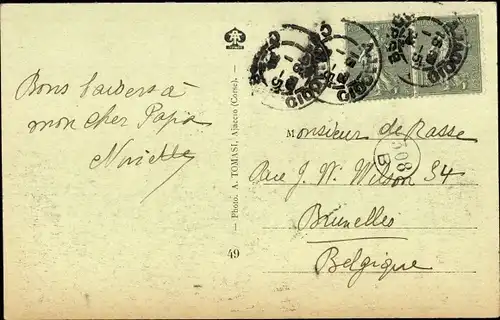 Bons baisers à
mon cher Papa
Nirielle
49 — Photo. A. TOMASI, Ajaccio (Corse). —
AJACCIO
Monsieur de Rasse
Rue J. W. Wilson 34
Bruxelles
Belgique
308
B